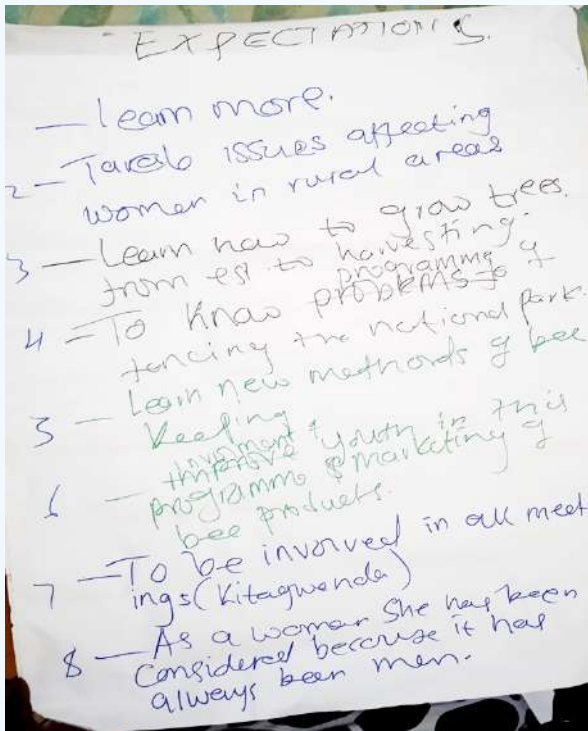 EXPECTATIONS.
— Learn more.
2 — issues affecting
women in rural areas
3 — Learn how to grow trees.
from est to harvesting.
programme
4 — To know problems of
fencing the national park.
5 — Learn new methords of bee
keeping
involvment of
6 — improve youth in this
programme & marketing of
bee products.
7 — To be involved in all meet
ings (Kitagwenda)
8 — As a woman she has been
considered because it has
always been men.